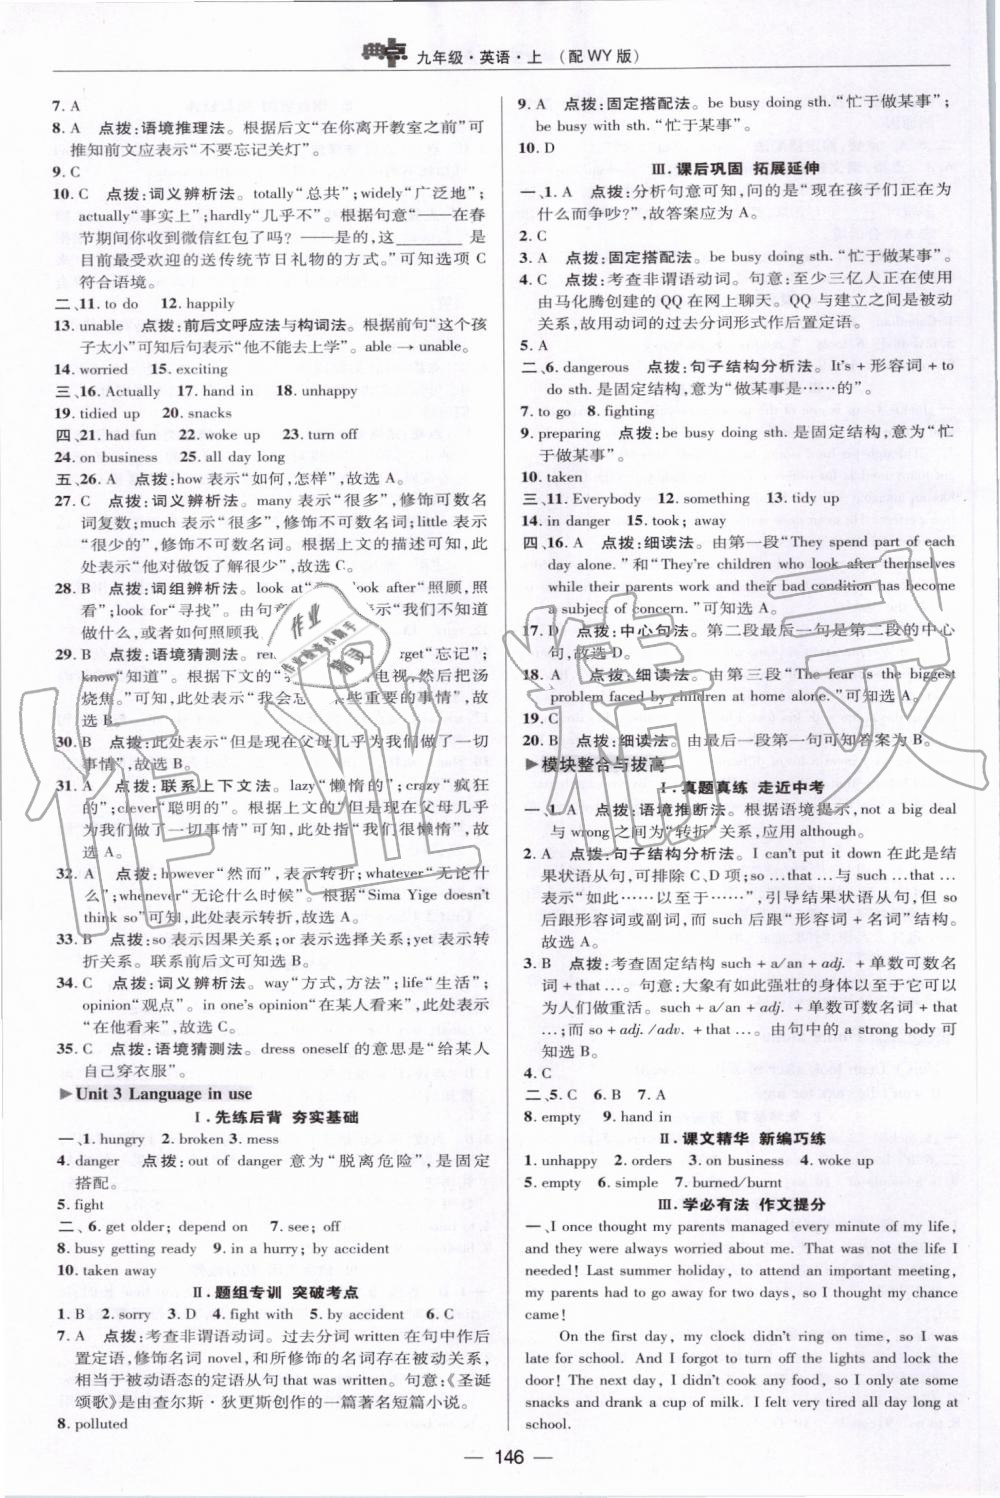 典中点 九年级·英语·上 （配 WY 版）
7. A
8. A 点拨：语境推理法。根据后文“在你离开教室之前”可
推知前文应表示“不要忘记关灯”。
9. C
10. C 点拨：词义辨析法。totally“总共”；widely“广泛地”；
actually“事实上”；hardly“几乎不”。根据句意“——在春
节期间你收到微信红包了吗？——是的，这________是
目前最受欢迎的送传统节日礼物的方式。”可知选项 C
符合语境。
二、11. to do 12. happily
13. unable 点拨：前后文呼应法与构词法。根据前句“这个孩
子太小”可知后句表示“他不能去上学”。able → unable。
14. worried 15. exciting
三、16. Actually 17. hand in 18. unhappy
19. tidied up 20. snacks
四、21. had fun 22. woke up 23. turn off
24. on business 25. all day long
五、26. A 点拨：how 表示“如何，怎样”，故选 A。
27. C 点拨：词义辨析法。many 表示“很多”，修饰可数名
词复数；much 表示“很多”，修饰不可数名词；little 表示
“很少的”，修饰不可数名词。根据上文的描述可知，此
处表示“他对做饭了解很少”，故选 C。
28. B 点拨：词组辨析法。look at“看”；look after“照顾，照
看”；look for“寻找”。由句意 表示“我们不知道
做什么，或者如何照顾我
29. B 点拨：语境猜测法。 get“忘记”；
know“知道”。根据下文的 电视，然后把汤
烧焦。”可知，此处表示“我会忘 些重要的事情”，故
选 B。
30. B 点拨：此处表示“但是现在父母几乎为我们做了一切
事情”，故选 B。
31. A 点拨：联系上下文法。lazy“懒惰的”；crazy“疯狂
的”；clever“聪明的”。根据上文“但是现在父母几乎
为我们做了一切事情”可知，此处指“我们很懒惰”，故
选 A。
32. A 点拨：however“然而”，表示转折；whatever“无论什
么”；whenever“无论什么时候”。根据“Sima Yige doesn't
think so”可知，此处表示转折，故选 A。
33. B 点拨：so 表示因果关系；or 表示选择关系；yet 表示转
折关系。联系前后文可知选 B。
34. C 点拨：词义辨析法。way“方式，方法”；life“生活”；
opinion“观点”。in one's opinion“在某人看来”，此处表示
“在他看来”，故选 C。
35. C 点拨：语境猜测法。dress oneself 的意思是“给某人
自己穿衣服”。
Unit 3 Language in use
Ⅰ. 先练后背 夯实基础
一、1. hungry 2. broken 3. mess
4. danger 点拨：out of danger 意为“脱离危险”，是固定
搭配。
5. fight
二、6. get older; depend on 7. see; off
8. busy getting ready 9. in a hurry; by accident
10. taken away
Ⅱ. 题组专训 突破考点
1. B 2. sorry 3. D 4. fight with 5. by accident 6. C
7. A 点拨：考查非谓语动词。过去分词 written 在句中作后
置定语，修饰名词 novel，和所修饰的名词存在被动关系，
相当于被动语态的定语从句 that was written。句意：《圣诞
颂歌》是由查尔斯·狄更斯创作的一篇著名短篇小说。
8. polluted
9. A 点拨：固定搭配法。be busy doing sth.“忙于做某事”；
be busy with sth.“忙于某事”。
10. D
Ⅲ. 课后巩固 拓展延伸
一、1. A 点拨：分析句意可知，问的是“现在孩子们正在为
什么而争吵？”，故答案应为 A。
2. C
3. A 点拨：固定搭配法。be busy doing sth.“忙于做某事”。
4. C 点拨：考查非谓语动词。句意：至少三亿人正在使用
由马化腾创建的 QQ 在网上聊天。QQ 与建立之间是被动
关系，故用动词的过去分词形式作后置定语。
5. A
二、6. dangerous 点拨：句子结构分析法。It's + 形容词 + to
do sth. 是固定结构，意为“做某事是……的”。
7. to go 8. fighting
9. preparing 点拨：be busy doing sth. 是固定结构，意为“忙
于做某事”。
10. taken
三、11. Everybody 12. something 13. tidy up
14. in danger 15. took; away
四、16. A 点拨：细读法。由第一段“They spend part of each
day alone.”和“They're children who look after themselves
while their parents work and their bad condition has become
a subject of concern.”可知选 A。
17. D 点拨：中心句法。第二段最后一句是第二段的中心
句，故选 D。
18. A 点拨：细读法。由第三段“The fear is the biggest
problem faced by children at home alone.”可知选 A。
19. C
20. B 点拨：细读法。由最后一段第一句可知答案为 B。
模块整合与拔高
Ⅰ. 真题真练 走近中考
一、1. A 点拨：语境推断法。根据语境提示，not a big deal
与 wrong 之间为“转折”关系，应用 although。
2. A 点拨：句子结构分析法。I can't put it down 在此是结
果状语从句，可排除 C、D 项；so …that …与 such …that …
表示“如此……以至于……”，引导结果状语从句，但 so
后跟形容词或副词，而 such 后跟“形容词 + 名词”结构。
故选 A。
3. B 点拨：考查固定结构 such + a/an + adj. + 单数可数名
词 + that …。句意：大象有如此强壮的身体以至于它可以
为人们做重活。such + a/an + adj. + 单数可数名词 + that
…；而 so + adj. /adv. + that …。由句中的 a strong body 可
知选 B。
4. C
二、5. C 6. B 7. A
8. empty 9. hand in
Ⅱ. 课文精华 新编巧练
1. unhappy 2. orders 3. on business 4. woke up
5. empty 6. simple 7. burned/burnt
Ⅲ. 学必有法 作文提分
一、I once thought my parents managed every minute of my life,
and they were always worried about me. That was not the life I
needed! Last summer holiday, to attend an important meeting,
my parents had to go away for two days, so I thought my chance
came!
On the first day, my clock didn't ring on time, so I was
late for school. And I forgot to turn off the lights and lock the
door! The next day, I didn't cook any food, so I only ate some
snacks and drank a cup of milk. I felt very tired all day long at
school.
146